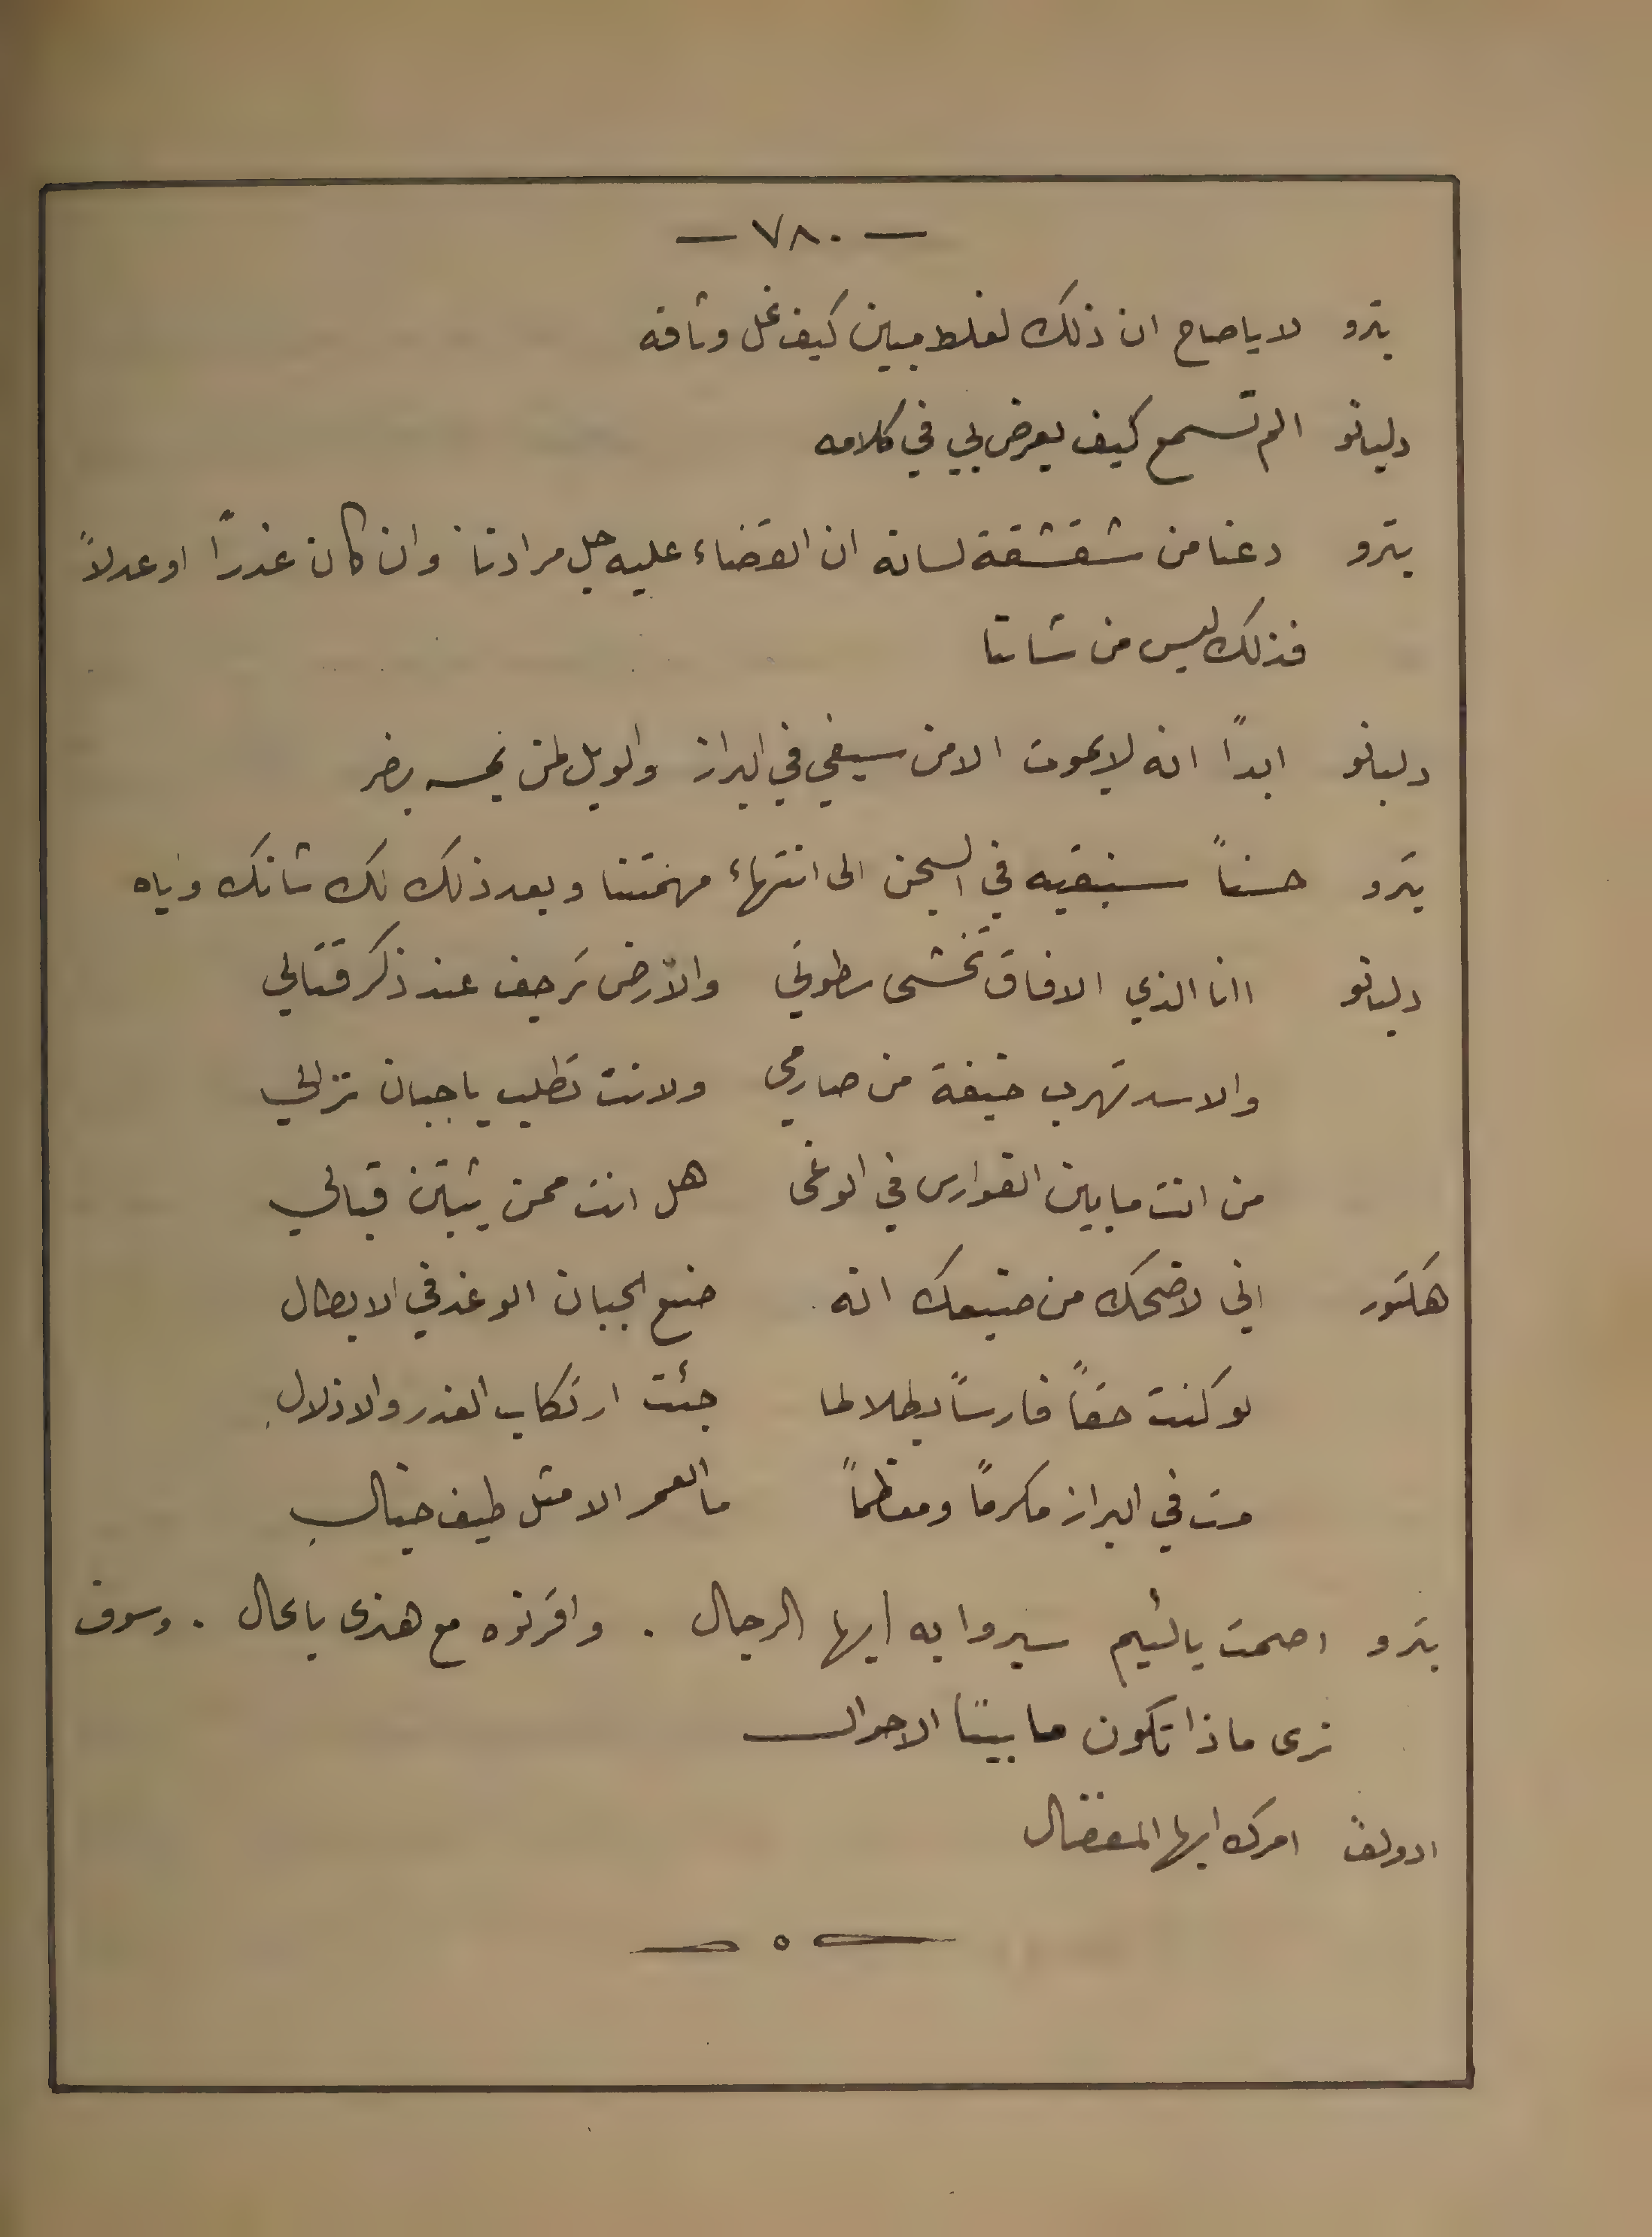 — ٧٨٠ —
بترو لا ياصاح ان ذلك لغلط مبين كيف نحل وثاقه
دليانو الم تسمع كيف يعرض بي في كلامه
بترو دعنا من شقشقة لسانه ان القضاء عليه جل مرادنا وان كان غدراً او عدلاً
فذلك ليس من شاننا
دليانو ابداً انه لا يموت الا من سيفي في البراز والويل لمن يمسه بضر
بترو حسناً سنبقيه في السجن الى انتهاء مهمتنا وبعد ذلك لك شانك وياه
دليانو اانا الذي الافاق تخشى سطوتي والارض ترجف عند ذكر قتالي
والاسد تهرب خيفة من صارمي ولانت تطلب يا جبان نزالي
من انت ما بين الفوارس في الوغى هل انت ممن يثبتن قبالي
هكتور اني لاضحك من صنيعك انه صنع الجبان الوغد في الابطال
لو كنت حقاً فارساً بطلا لما جئت ارتكاب الغدر والاذلال
مت في البراز مكرماً ومعظماً ما العمر الا مثل طيف خيال
بترو اصمت يا لئيم سيروا به ايها الرجال . وافرنزه مع هنري بالحال . وسوف
نرى ماذا تكون ما بيننا الاحوال
ادولف امرك ايها المفضال